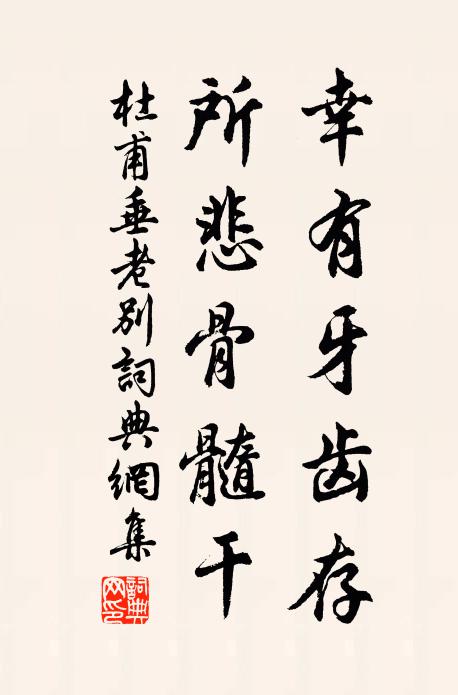 幸有牙齿存
所悲骨髓干
杜甫垂老别詞典網集
詞典网印